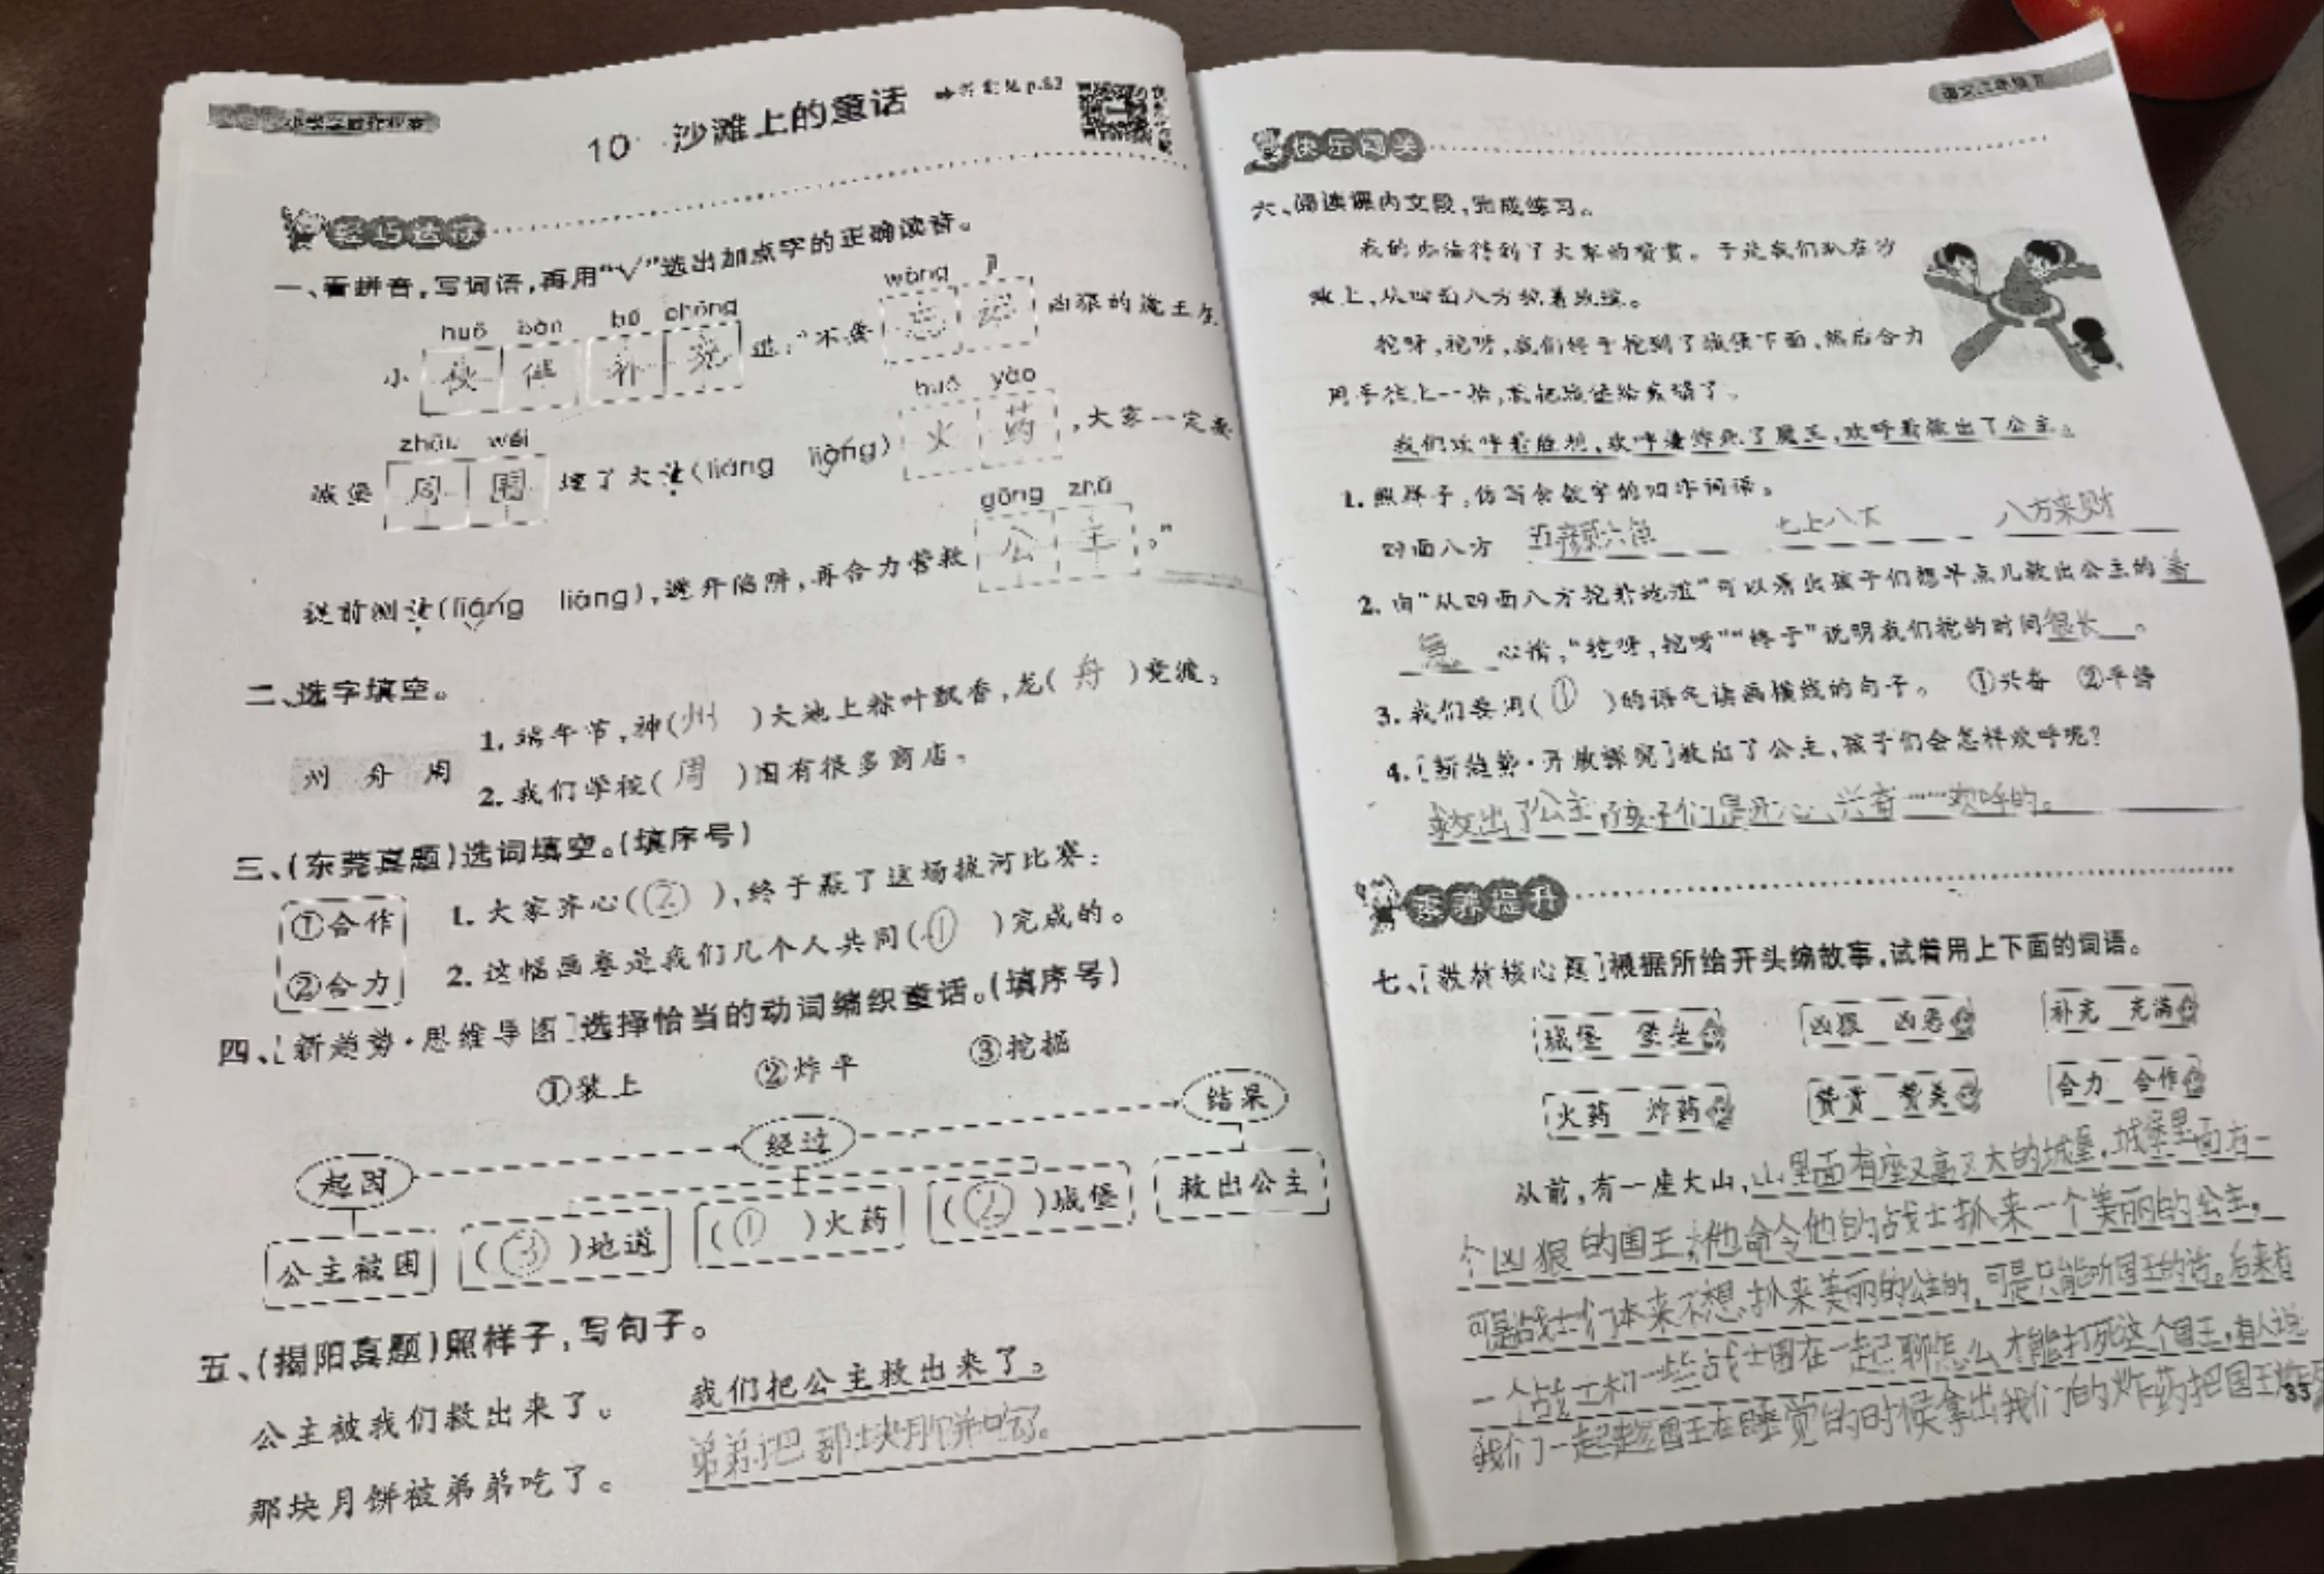 小学学霸作业本
10 沙滩上的童话
➜答案见p.83
轻巧达标
一、看拼音,写词语,再用“√”选出加点字的正确读音。
huǒ bàn bǔ chōng wàng jì
小 伙伴 补充 道:“不要 忘记 凶狠的魔王在
zhōu wéi huǒ yào
城堡 周围 埋了大量(liáng liàng√) 火药 ,大家一定要
gōng zhǔ
提前测量(liáng√ liàng),避开陷阱,再合力营救 公主 。”
二、选字填空。
州 舟 周
1. 端午节,神(州)大地上粽叶飘香,龙(舟)竞渡。
2. 我们学校(周)围有很多商店。
三、(东莞真题)选词填空。(填序号)
①合作
②合力
1. 大家齐心(②),终于赢了这场拔河比赛。
2. 这幅画卷是我们几个人共同(①)完成的。
四、[新趋势·思维导图]选择恰当的动词编织童话。(填序号)
①装上 ②炸平 ③挖掘
起因 经过 结果
公主被困 (③)地道 (①)火药 (②)城堡 救出公主
五、(揭阳真题)照样子,写句子。
公主被我们救出来了。 我们把公主救出来了。
那块月饼被弟弟吃了。 弟弟把那块月饼吃了。
语文二年级下
快乐闯关
六、阅读课内文段,完成练习。
我的办法得到了大家的赞赏。于是我们趴在沙
滩上,从四面八方挖着地道。
挖呀,挖呀,我们终于挖到了城堡下面,然后合力
用手往上一抬,就把城堡给轰塌了。
我们欢呼着胜利,欢呼着炸死了魔王,欢呼着救出了公主。
1. 照样子,仿写含数字的四字词语。
四面八方 五颜六色 七上八下 八方来财
2. 由“从四面八方挖着地道”可以看出孩子们想早点儿救出公主的着
急 心情,“挖呀,挖呀”“终于”说明我们挖的时间很长。
3. 我们要用(①)的语气读画横线的句子。 ①兴奋 ②平静
4. [新趋势·开放探究]救出了公主,孩子们会怎样欢呼呢?
救出了公主,孩子们是开心、兴奋……欢呼的。
素养提升
七、[教材核心题]根据所给开头编故事,试着用上下面的词语。
城堡 堡垒 凶狠 凶恶 补充 充满
火药 炸药 赞赏 赞美 合力 合作
从前,有一座大山,山里面有座又高又大的城堡,城堡里面有一
个凶狠的国王,他命令他的战士抓来一个美丽的公主。
可是战士们本来不想抓来美丽的公主的,可是只能听国王的话。后来有
一个战士和一些战士围在一起聊怎么才能打死这个国王,有人说
我们一起趁国王在睡觉的时候拿出我们的炸药把国王炸
33